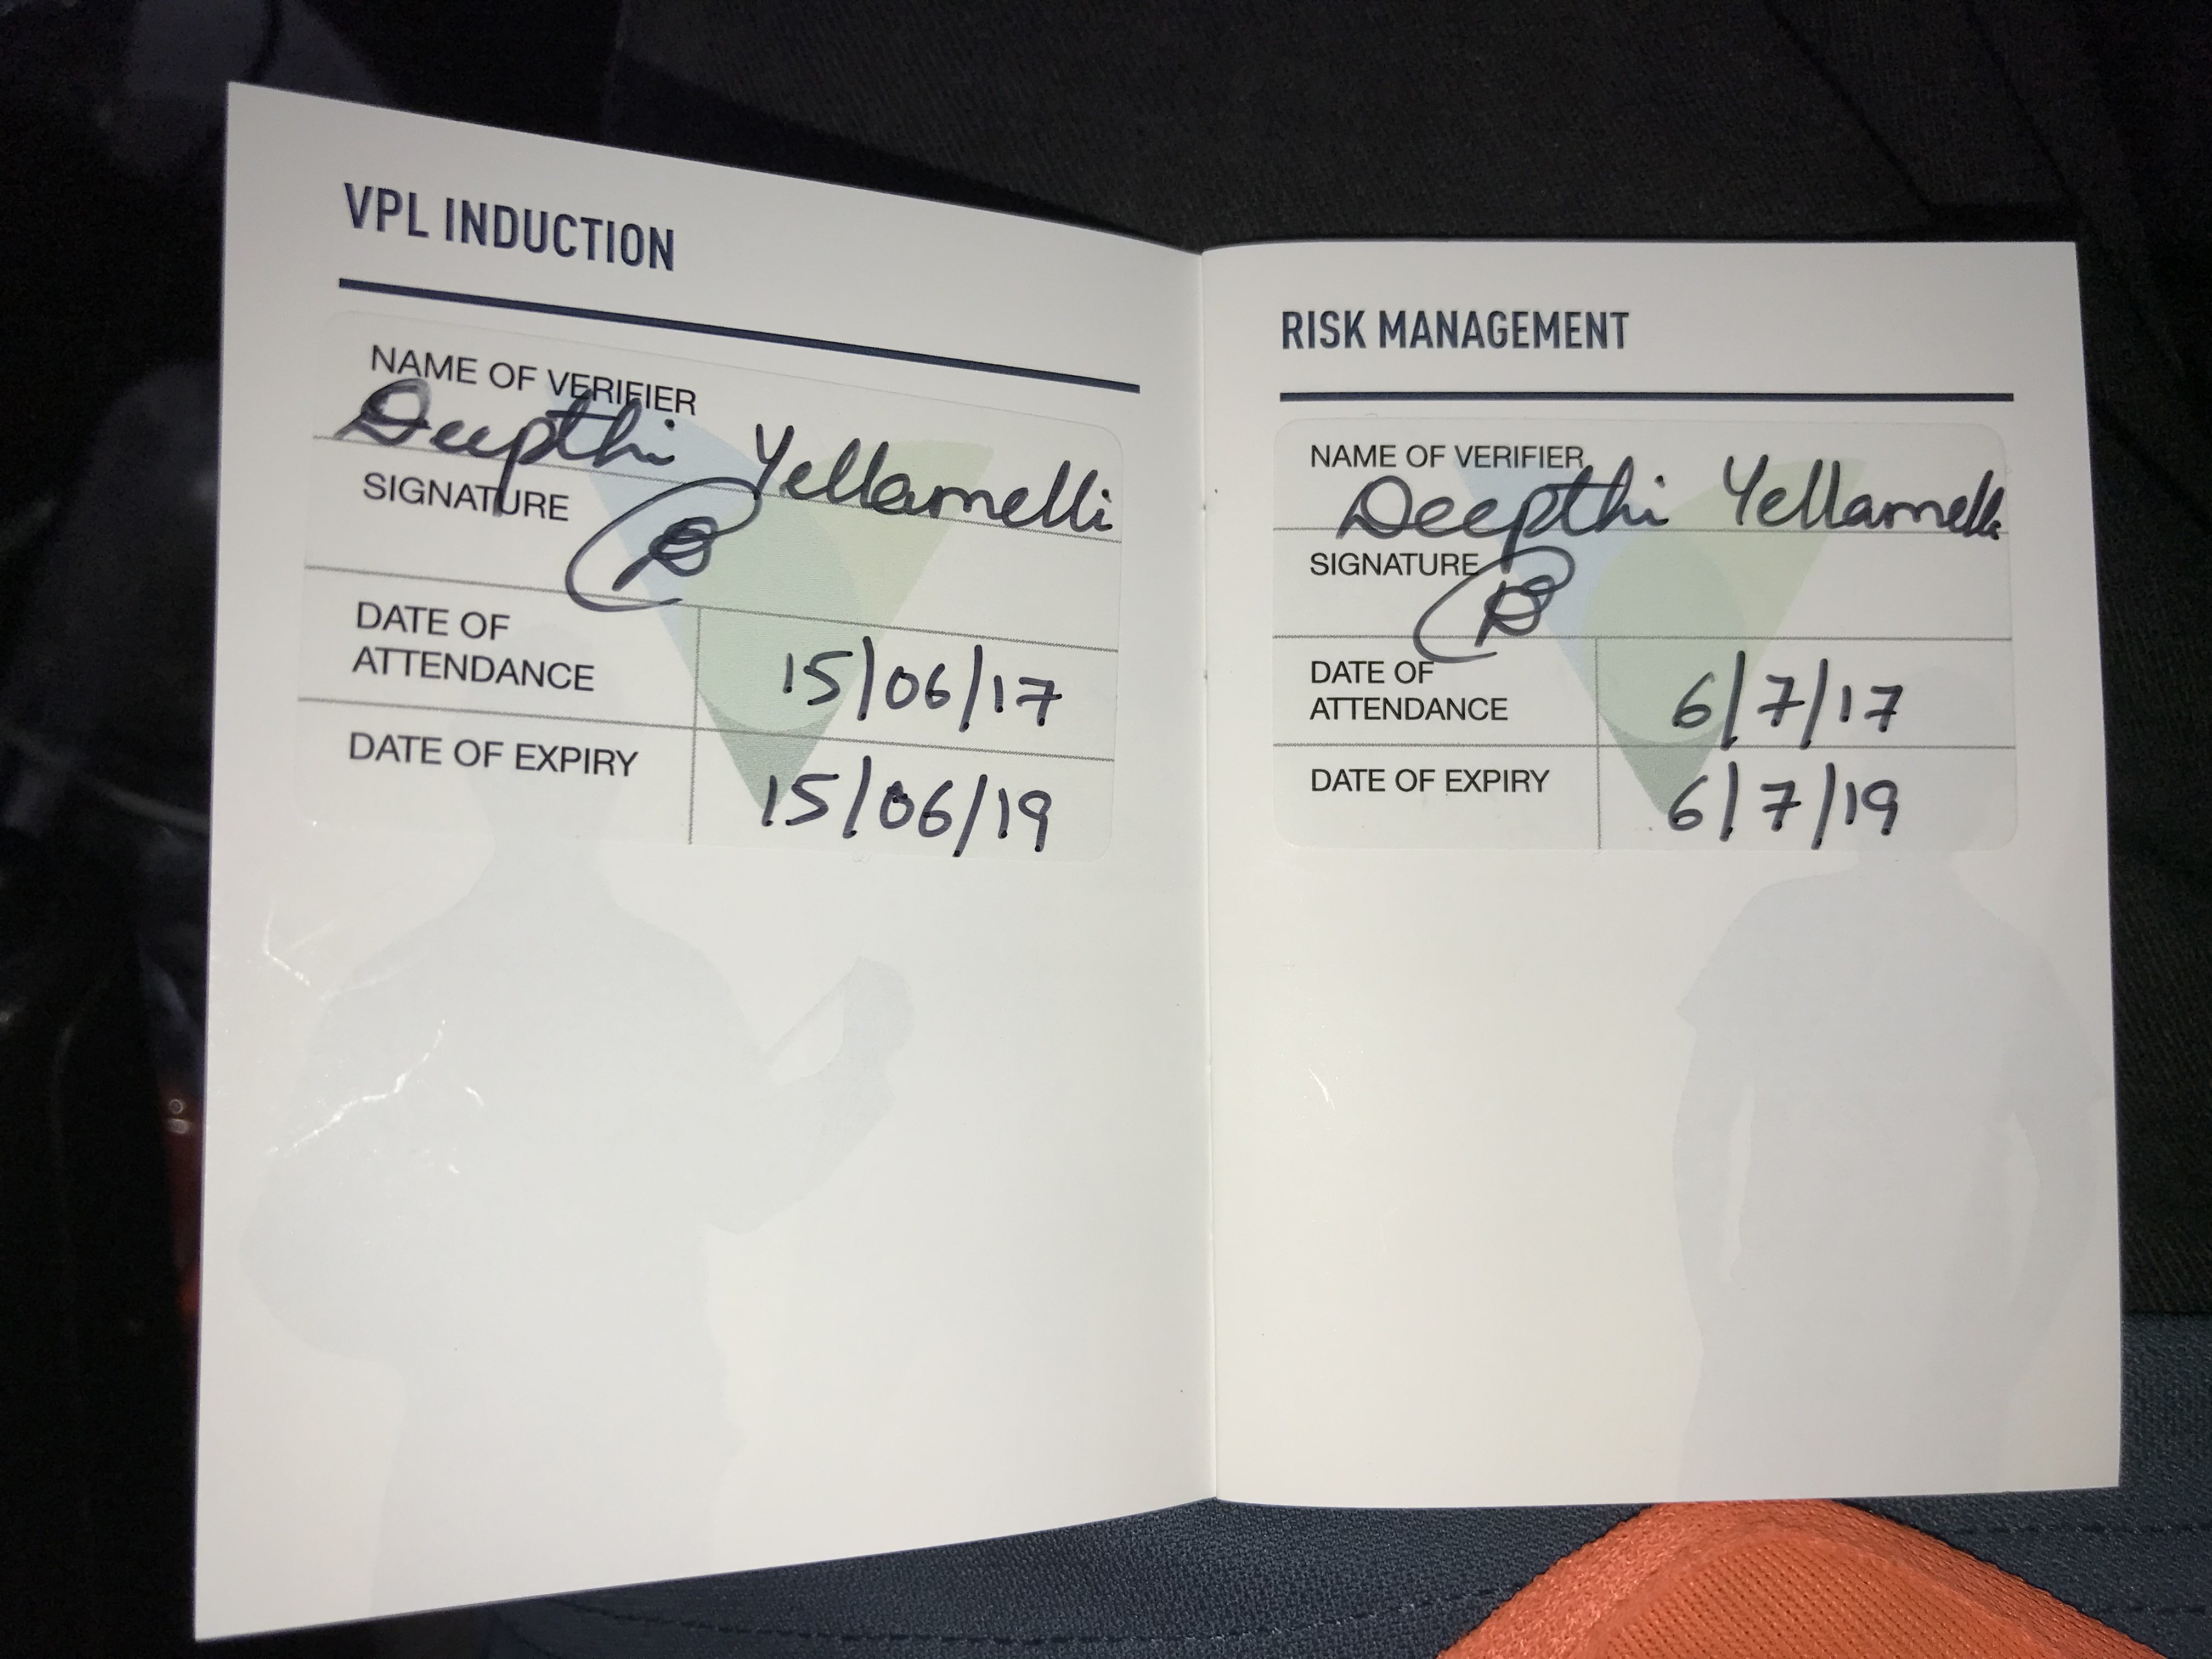 VPL INDUCTION
NAME OF VERIFIER
Deepthi Yellamelli
SIGNATURE
DATE OF
ATTENDANCE
15/06/17
DATE OF EXPIRY
15/06/19
RISK MANAGEMENT
NAME OF VERIFIER
Deepthi Yellamelli
SIGNATURE
DATE OF
ATTENDANCE
6/7/17
DATE OF EXPIRY
6/7/19